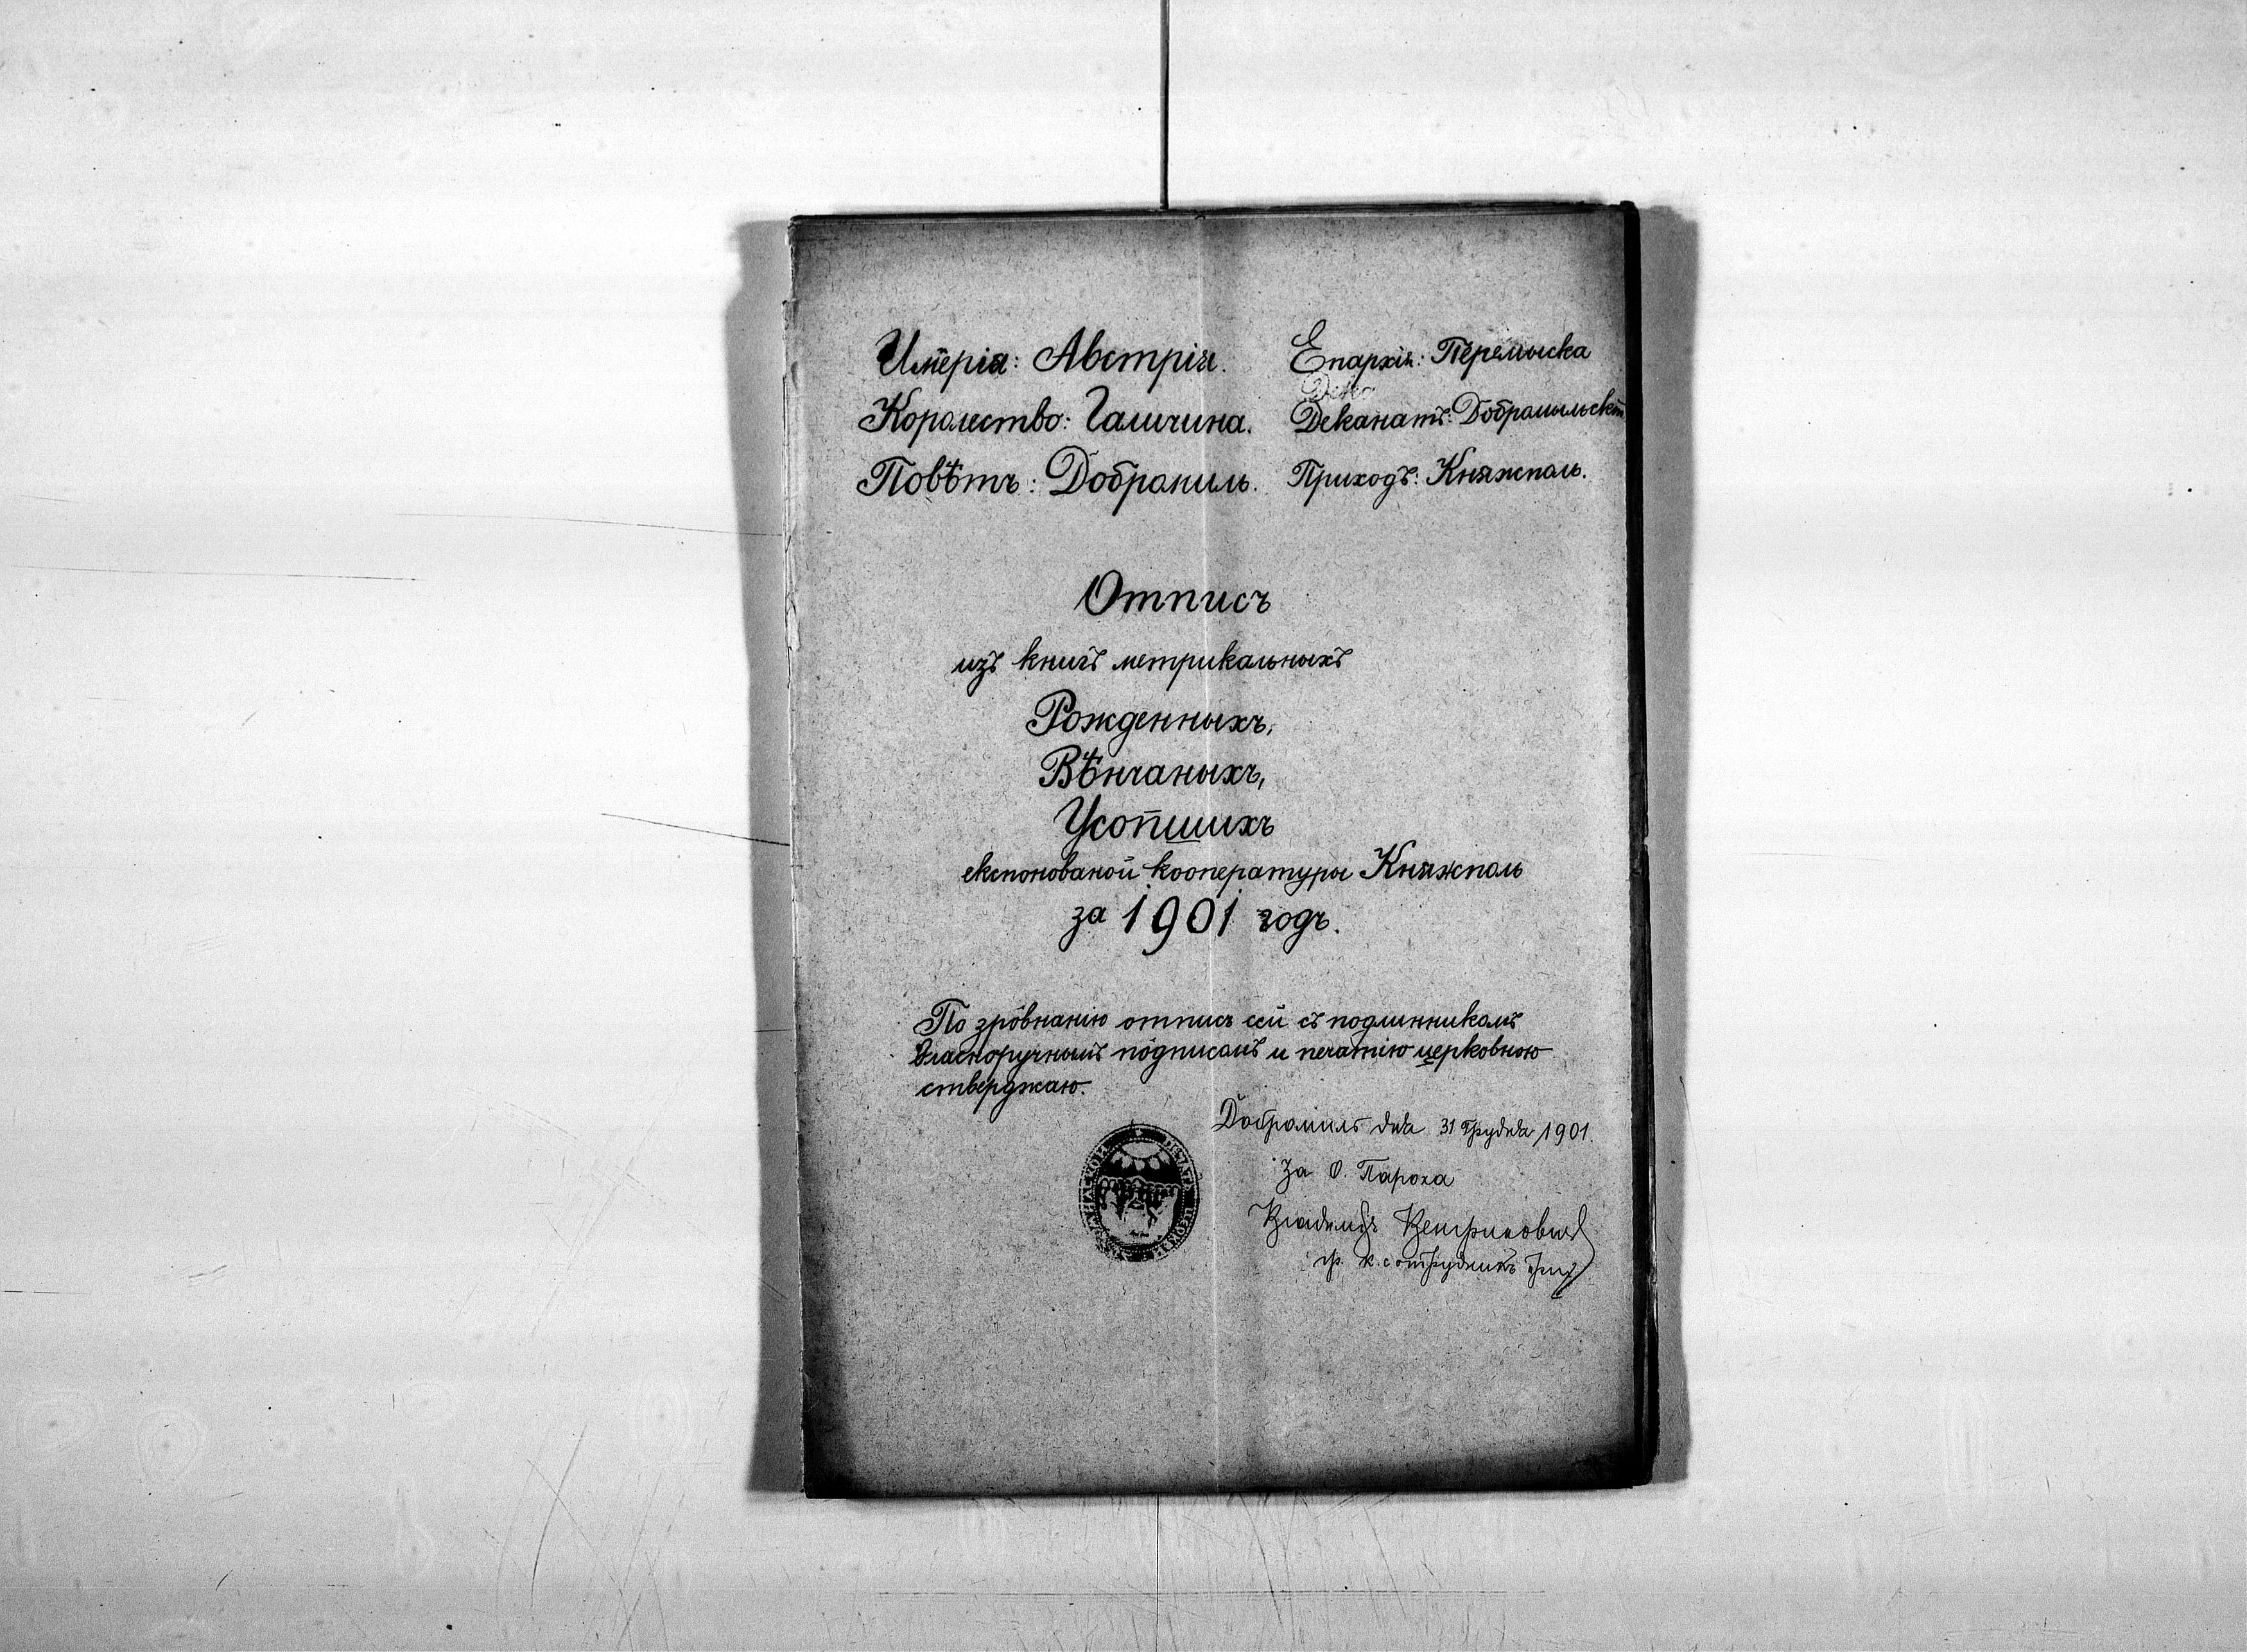 Имперія: Австрія.
Королество: Галичина.
Повѣтъ: Добромиль.
Епархія: Перемыска
Деканатъ: Добромильскій
Приходъ: Княжполь.
Отписъ
изъ книгъ метрикальныхъ
Рожденныхъ,
Вѣнчаныхъ,
Усопшихъ
експонованой коопературы Княжполь
за 1901 годъ.
По зрôвнанію отписъ сей съ подлинникомъ
власноручнымъ пôдписомъ и печатію церковною
стверджаю.
Добромиль дня 31 Грудня 1901.
За О. Пароха
гр. к. сотрудникъ